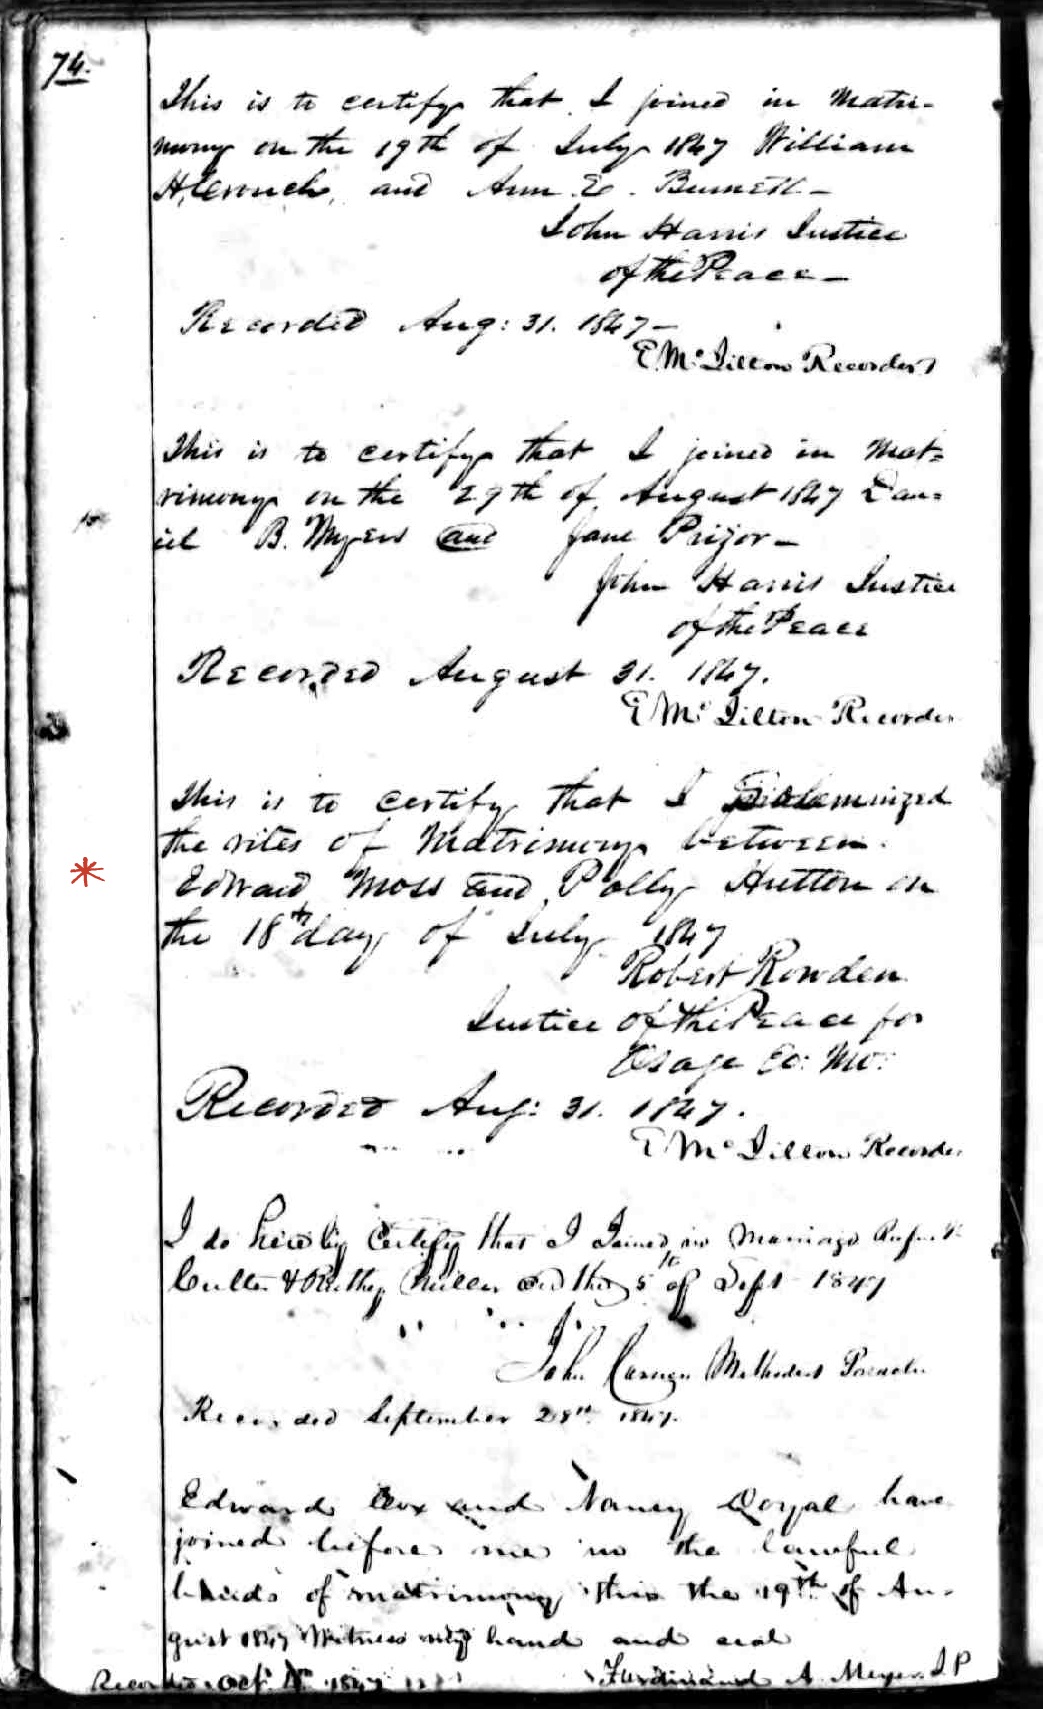 74.
This is to certify that I joined in Matri-
mony on the 19th of July 1847 William
H. Crouch, and Ann E. Burnett-
John Harris Justice
of the Peace-
Recorded Aug: 31. 1847-
E McJilton Recorder
This is to certify that I joined in Mat=
rimony on the 29th of August 1847 Dan=
iel B. Myers and Jane Prizor-
John Harris Justice
of the Peace
Recorded August 31. 1847.
E McJilton Recorder
This is to certify that I Solemnized
the rites of Matrimony between
Edward Moss and Polly Hutton on
the 18th day of July 1847
Robert Rowden
Justice of the Peace for
Osage Co: Mo:
Recorded Aug: 31. 1847.
E McJilton Recorder
I do hereby Certify that I Joined in Marriage
& Miller on the 5th of Sept 1847
John Methodist Preacher
Recorded September 28th 1847.
Edward Cox and Nancy Doyal have
joined before me in the lawful
bands of matrimony this the 19th of Au-
gust 1847 Witness my hand and seal
Recorded Oct. 1847 Ferdinand A. Meyer J P